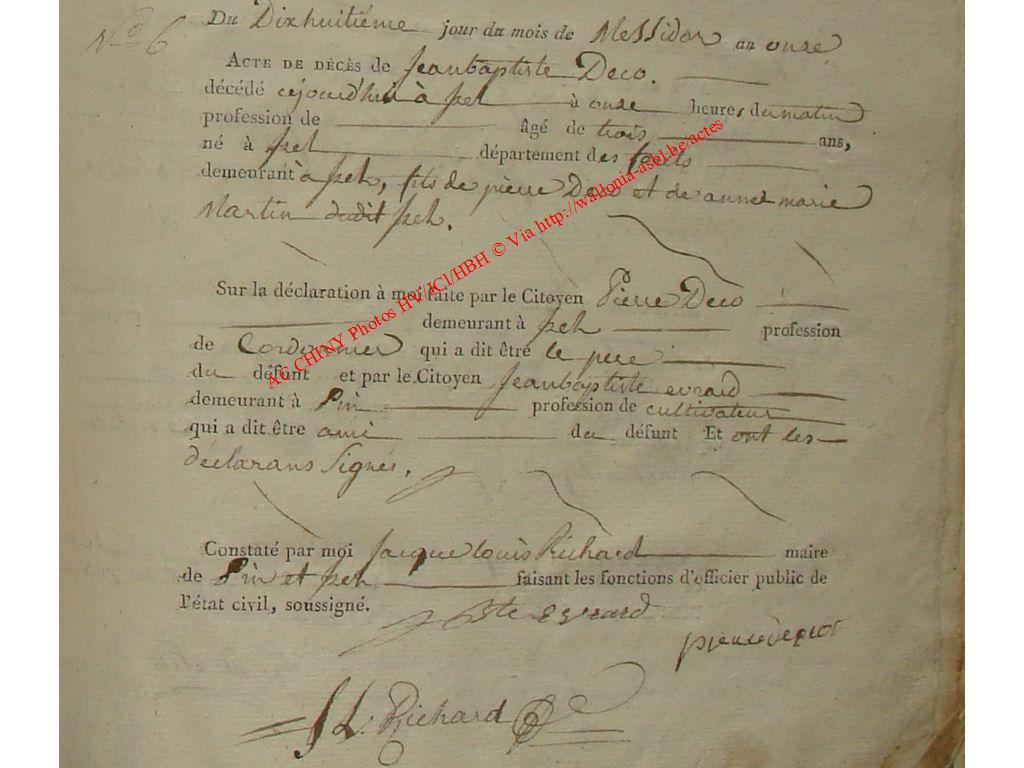 N° 6
Du Dixhuitiéme jour du mois de Messidor an onze
ACTE DE DÉCÈS de Jeanbaptiste Deco.
décédé cejourd'hui à Izel à onze heures du matin
profession de âgé de trois ans,
né à Izel département des forets
demeurant à Izel, fils de pierre Deco et de anne marie
Martin dudit Izel.
Sur la déclaration à moi faite par le Citoyen Pierre Deco
demeurant à Izel profession
de Cordonnier qui a dit être le pere
du défunt et par le Citoyen Jeanbaptiste evrard
demeurant à Pin profession de cultivateur
qui a dit être ami du défunt Et ont les
déclarans Signés.
Constaté par moi Jacque louis Richard maire
de Pin et Izel faisant les fonctions d'officier public de
l'état civil, soussigné.
J Bte evrard
J L. Richard
AG CHINY Photos HV/JCl/HBH © Via http://wallonia-asbl.be/actes